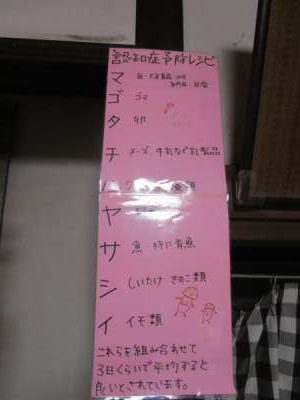 認知症予防レシピ
マ 豆・大豆製品
ゴ ゴマ
タ 卵
チ チーズ 牛乳など乳製品
ヤ
サ 魚 特に青魚
シ しいたけ きのこ類
イ イモ類
これらを組み合わせて
3日くらいで平均すると
良いとされています。